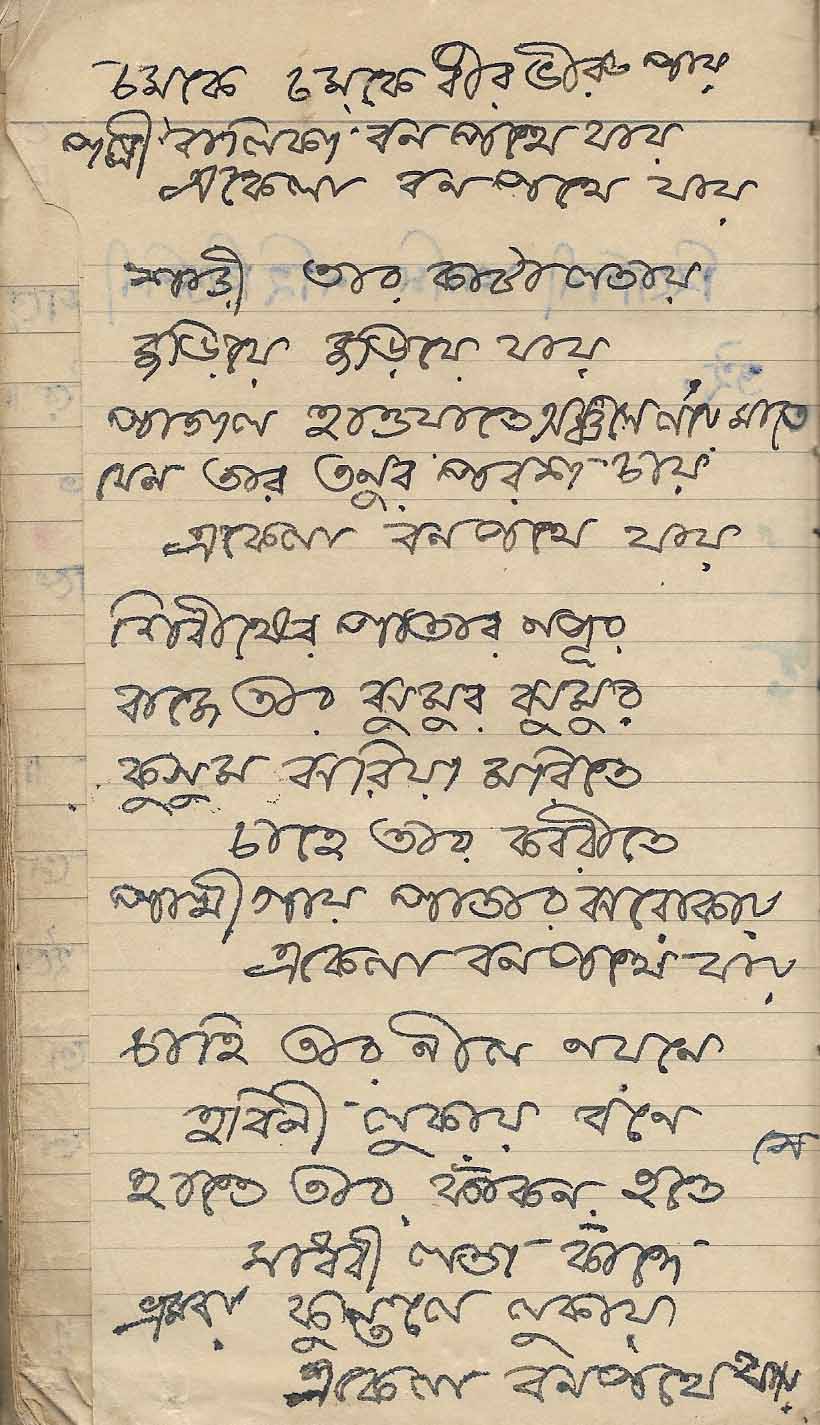 চমকে চমকে ধীর ভীরু পায়
পল্লী বালিকা বন পথে যায়
একেলা বন পথে যায়
শাড়ী তার কাটা লতায়
জড়িয়ে জড়িয়ে যায়
পাগল হাওয়াতে অঞ্চল লয়ে মাতে
যেন তার তনুর পরশ চায়
একেলা বন পথে যায়
শিরীষের পাতার নপূর
বাজে তার ঝুমুর ঝুমুর
কুসুম ঝরিয়া মরিতে
চাহে তার কবরীতে
পাখী গায় পাতার ঝরোকায়
একেলা বন পথে যায়
চাহি তার নীল নয়নে
হরিনী লুকায় বনে
হাতে তার কাঁকন হতে
মাধবী লতা কাঁদে
ভ্রমরা কুন্তলে লুকায়
একেলা বন পথে যায়